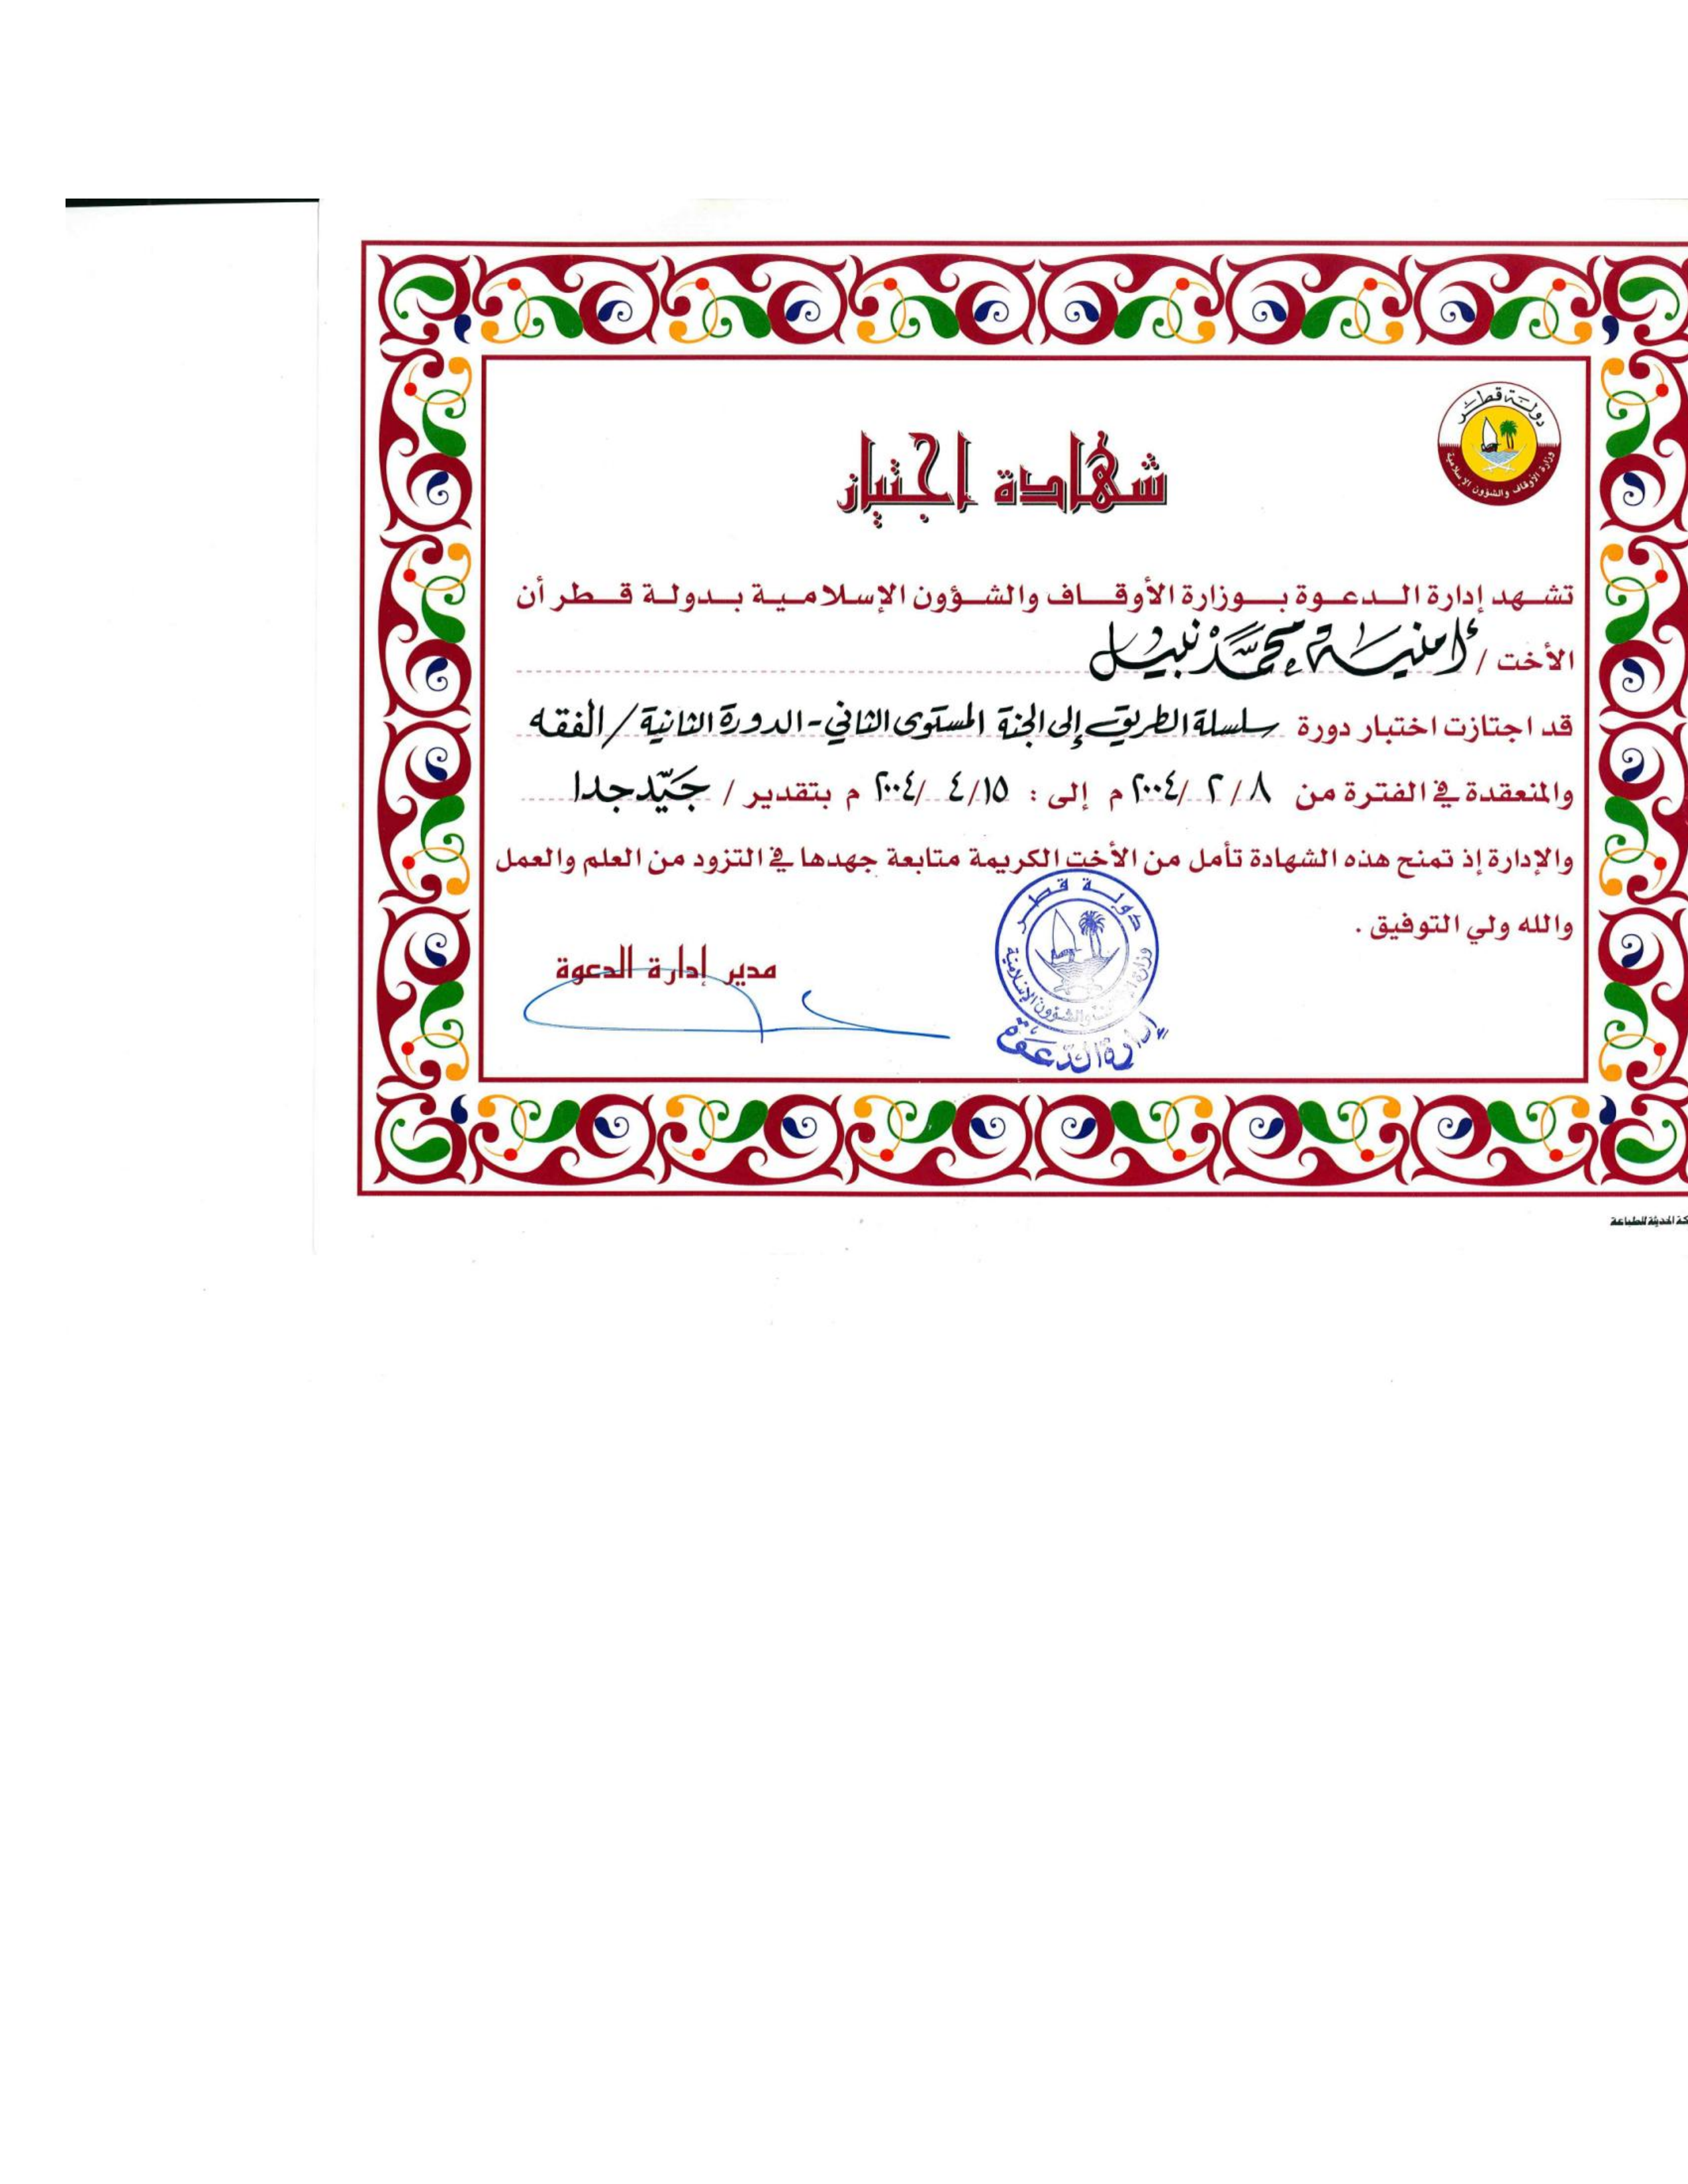 دولة قطر
وزارة الأوقاف والشؤون الإسلامية
شهادة اجتياز
تشهد إدارة الدعوة بوزارة الأوقاف والشؤون الإسلامية بدولة قطر أن
الأخت / أمنية محمد نبيل
قد اجتازت اختبار دورة سلسلة الطريق إلى الجنة المستوى الثاني - الدورة الثانية / الفقه
والمنعقدة في الفترة من ٨ / ٢ / ٢٠٠٤ م إلى : ١٥ / ٤ / ٢٠٠٤ م بتقدير / جَيّد جدا
والإدارة إذ تمنح هذه الشهادة تأمل من الأخت الكريمة متابعة جهدها في التزود من العلم والعمل
والله ولي التوفيق .
مدير إدارة الدعوة
دولة قطر
وزارة الأوقاف والشؤون الإسلامية
إدارة الدعوة
الحديثة للطباعة